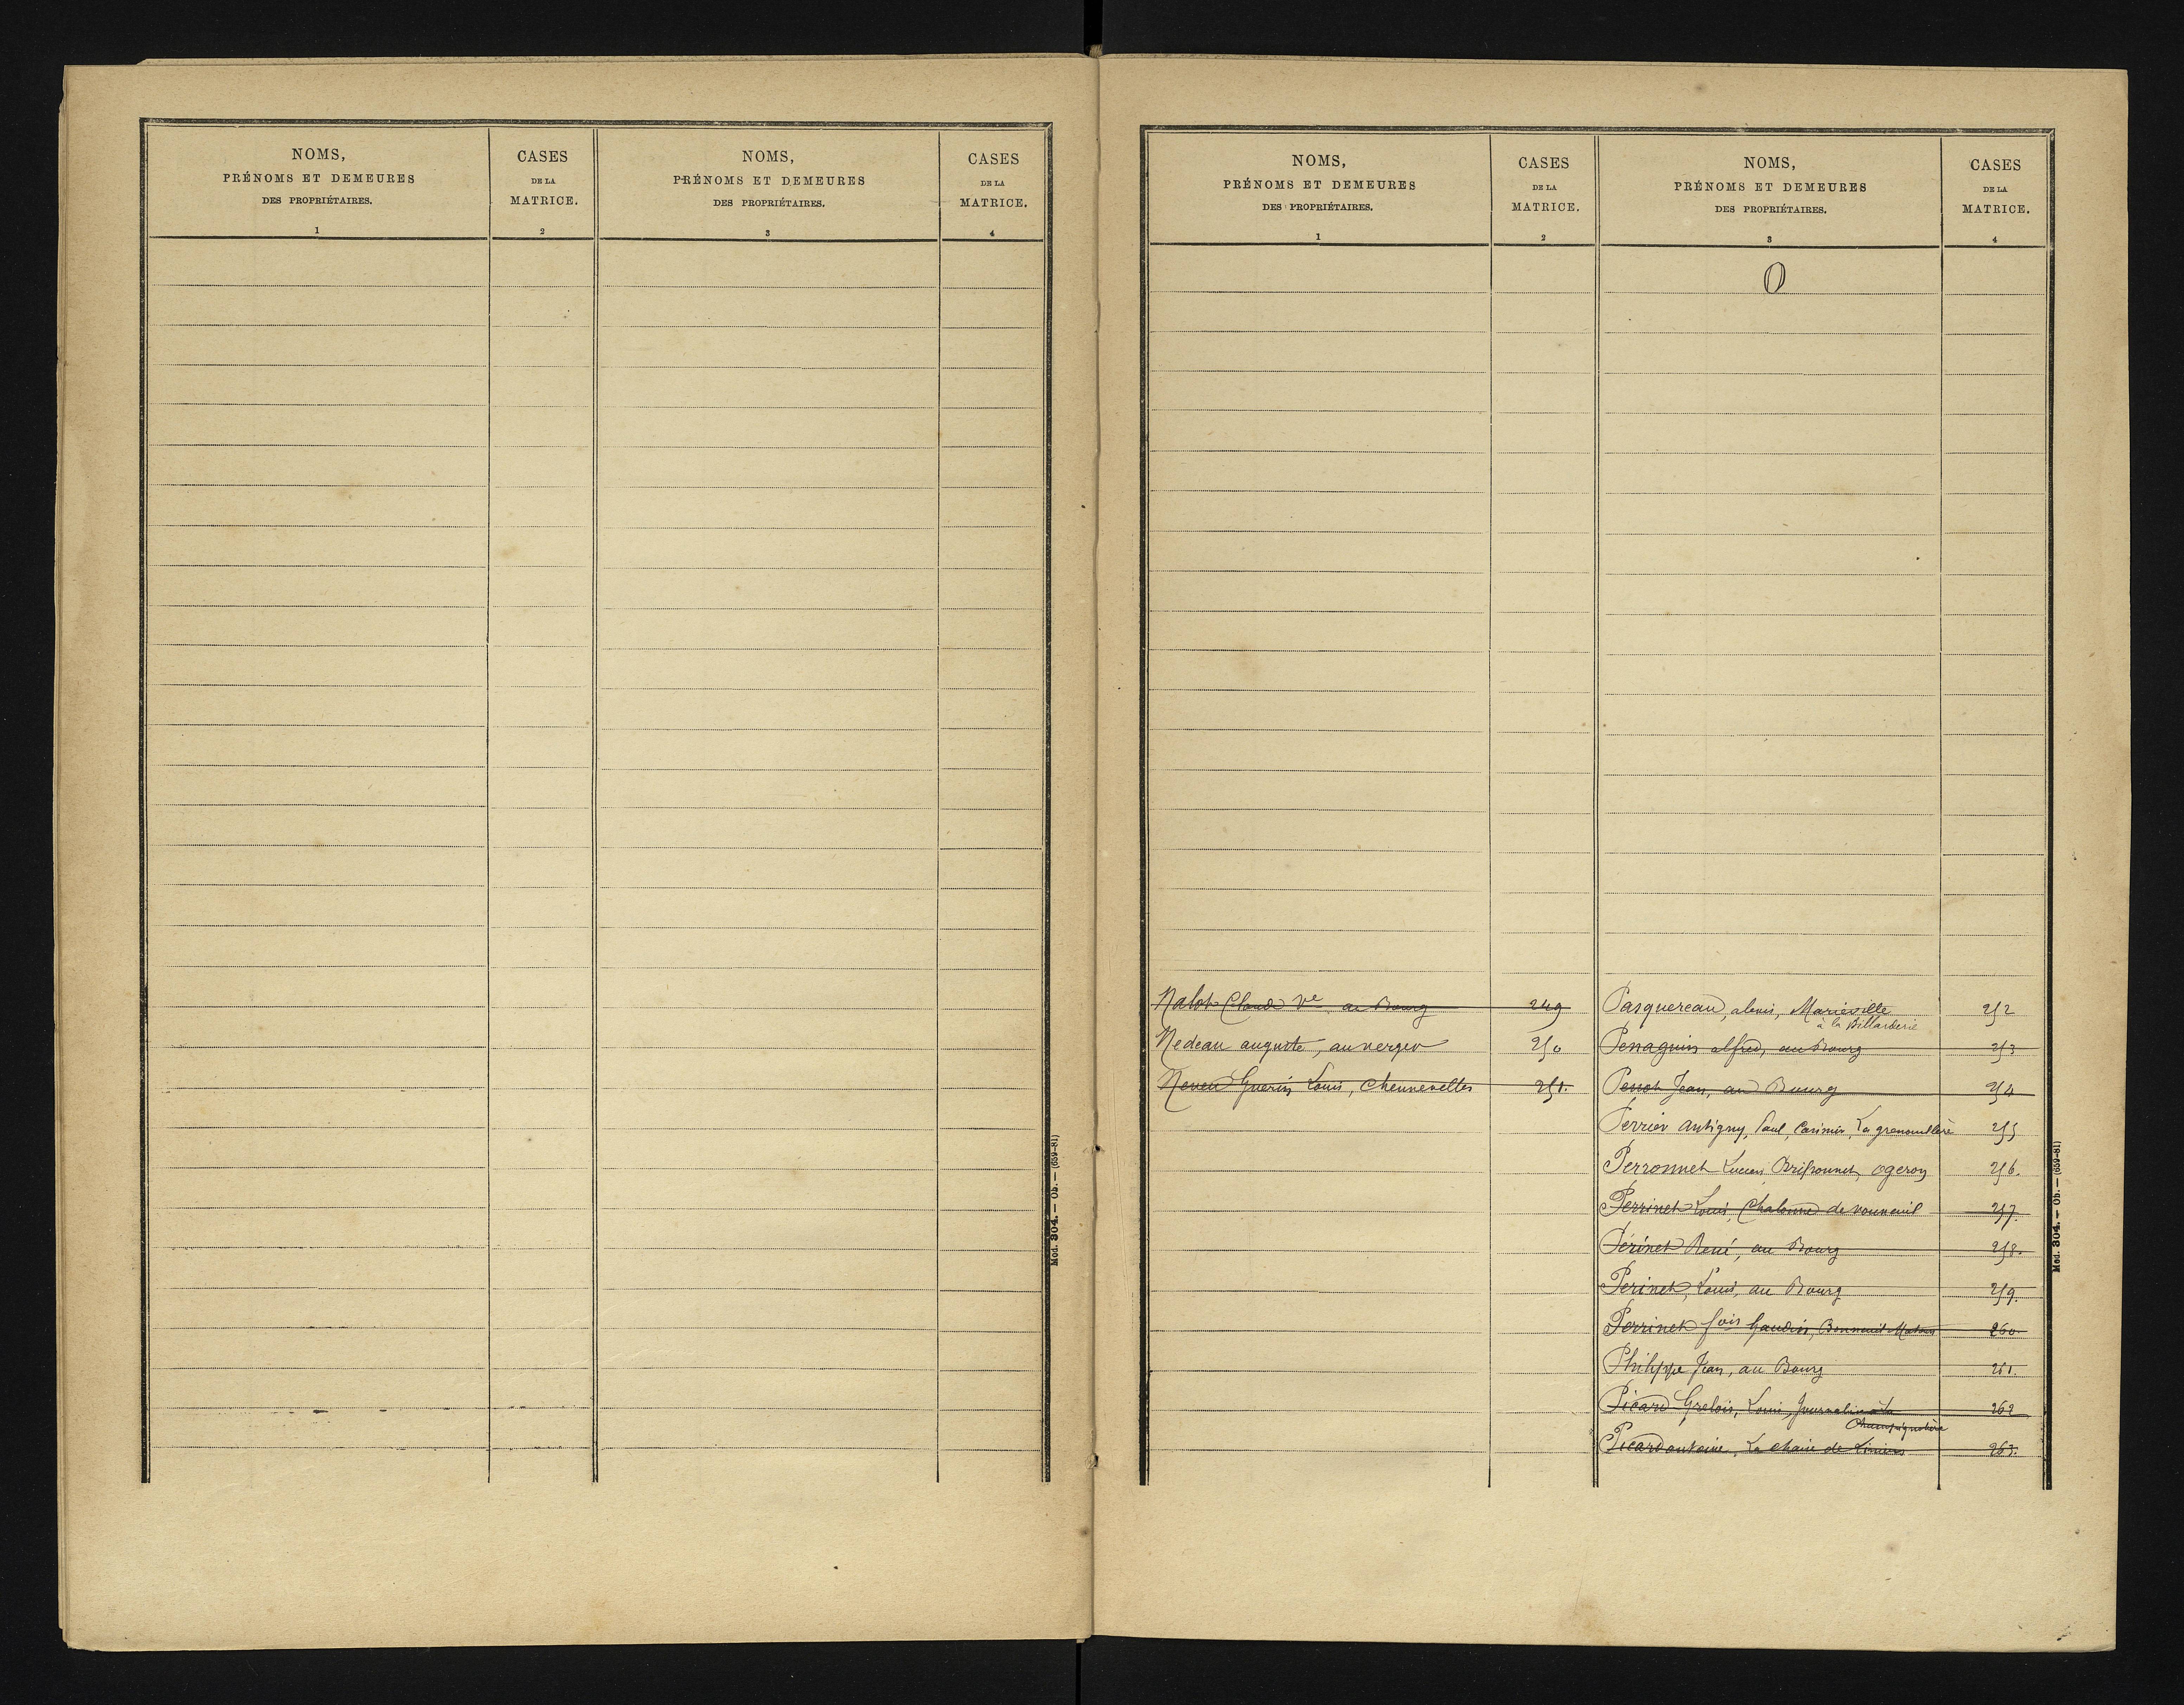 NOMS,
PRÉNOMS ET DEMEURES
DES PROPRIÉTAIRES.
1
CASES
DE LA
MATRICE.
2
NOMS,
PRÉNOMS ET DEMEURES
DES PROPRIÉTAIRES.
3
CASES
DE LA
MATRICE.
4
Mod. 304. — Ob. — (659-81)
NOMS,
PRÉNOMS ET DEMEURES
DES PROPRIÉTAIRES.
1
CASES
DE LA
MATRICE.
2
Nalot Claude Ve au Bourg 249
Nedeau auguste, au verger 250
Neveu Guerin Louis, Chennevelles 251.
NOMS,
PRÉNOMS ET DEMEURES
DES PROPRIÉTAIRES.
3
CASES
DE LA
MATRICE.
4
O
Pasquereau, alexis, Marieville 252
à la Billarderie
Penaguin alfred, au Bourg 253
Perrot Jean, au Bourg 254
Perrier Antigny, Paul, Casimir, La grenouillère 255
Perronnet Lucien Brissonnet, ogeron 256.
Perrinet Louis, Chalonne de vouneuil 257.
Périnet René, au Bourg 258.
Perinet, Louis, au Bourg 259.
Perrinet fois Gaudin, Bonneuil-Matours 260
Philippe Jean, au Bourg 261.
Picard Grelois, Louis, Journalier à la 262
Champignolière
Picard antoine, La chaise de Liniers 263.
Mod. 304. — Ob. — (659-81)